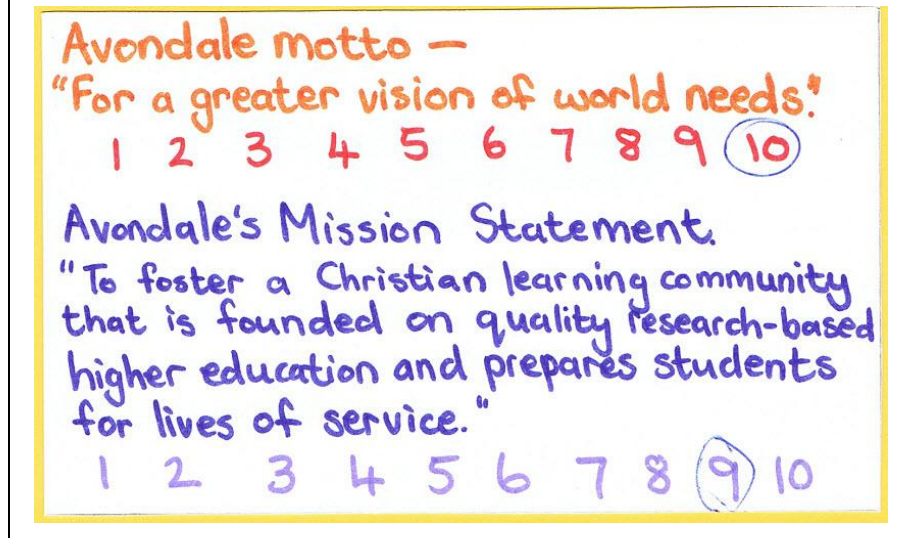 Avondale motto –
"For a greater vision of world needs."
1 2 3 4 5 6 7 8 9 10
Avondale's Mission Statement.
"To foster a Christian learning community
that is founded on quality research-based
higher education and prepares students
for lives of service."
1 2 3 4 5 6 7 8 9 10